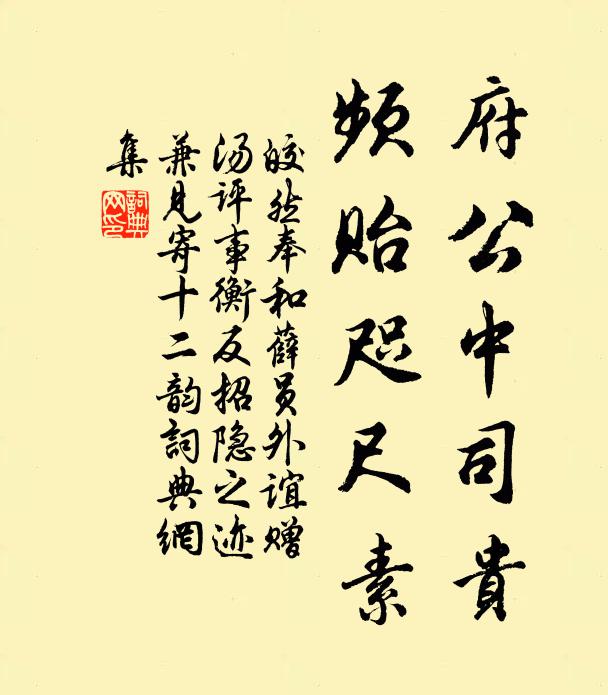 府公中司貴
頻貽咫尺素
皎然奉和薛员外谊赠
汤评事衡反招隐之迹
兼见寄十二韵詞典網
集
詞典
网印